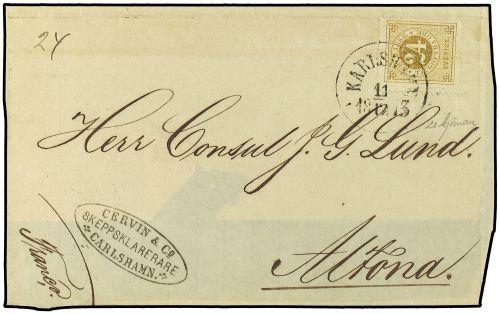 24
24
SVERIGE.
KARLSHAMN
11
1873
Herr Consul J. G. Lund.
CERVIN & Co
SKEPPSKLARERARE
CARLSHAMN.
Altona.
Franco.